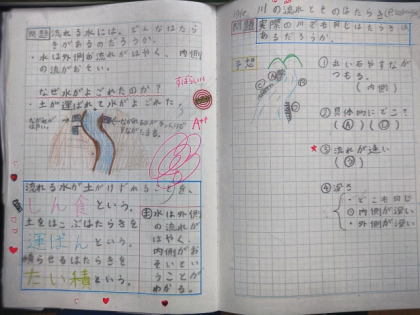 問題 流れる水には、どんなはたら
きがあるのだろうか。
・水は外側の流れがはやく、内側
の流がおそい。
なぜ水がよごれたのか?
・土が運ばれて水がよごれた。
すばらしい
A++
流れる水が土がけずれることを、
しん食という。
土をはこぶはたらきを
運ぱんという。
積らせるはたらきを
たい積という。
ま 水は外側
の流れが
はやく、
内側がお
そいとい
うことが
わかる。
川の流れとそのはたらき
問題 実際の川でも同じはたらきは
あるだろうか。
予想
① 丸い石やすなが
つもる。
(内側)
② 具体的にどこ?
(A)(D)
★③ 流れが速い
④ 深さ
・どこも同じ
・内側が深い
・外側が深い